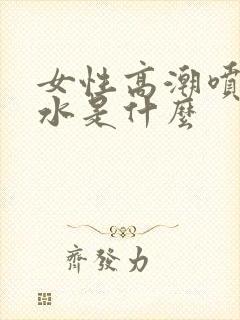 女性高潮噴
水是什麼
齊發力